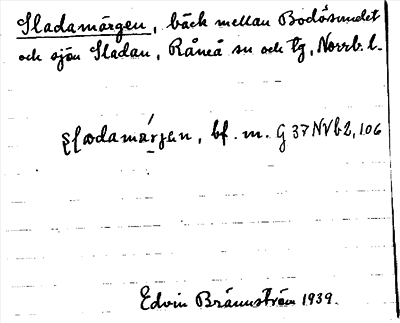 Sladamärgen, bäck mellan Bodösundet
och sjön Sladan, Råneå sn och tg, Norrb. l.
bf. m. G 37 NV b 2, 106
Edvin Brännström 1939.